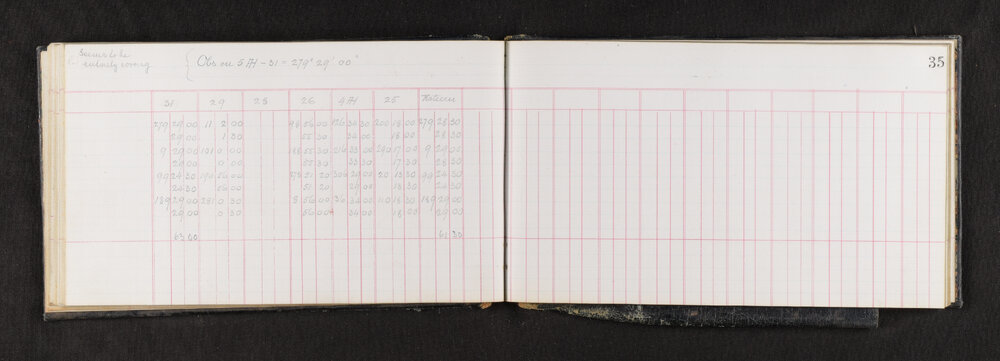 Seems to be
entirely wrong
Obs on 5 AH - 31 = 279° 29' 00"
35
31 29 25 26 4 AH 25 Return
279 29 00 11 2 00 98 56 00 126 34 30 200 18 00 279 28 30
29 00 1 30 55 30 34 00 18 00 28 30
9 29 00 101 0 00 188 55 30 216 33 00 290 17 00 9 29 00
29 00 0 00 55 30 33 30 17 30 28 30
99 24 30 190 56 00 278 51 20 306 29 00 20 13 30 99 24 30
24 30 56 00 51 20 29 00 13 30 24 30
189 29 00 281 0 30 8 56 00 36 34 00 110 18 30 189 29 00
29 00 0 30 56 00 34 00 18 00 29 00
63 00 61 30